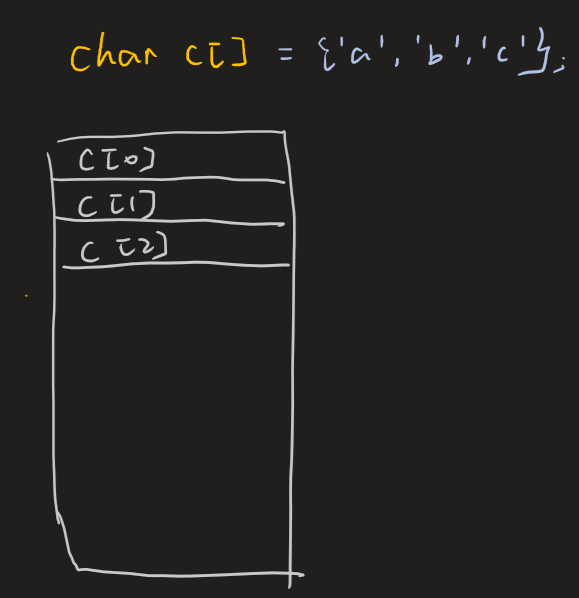 char c[] = {'a', 'b', 'c'};
c[0]
c[1]
c[2]